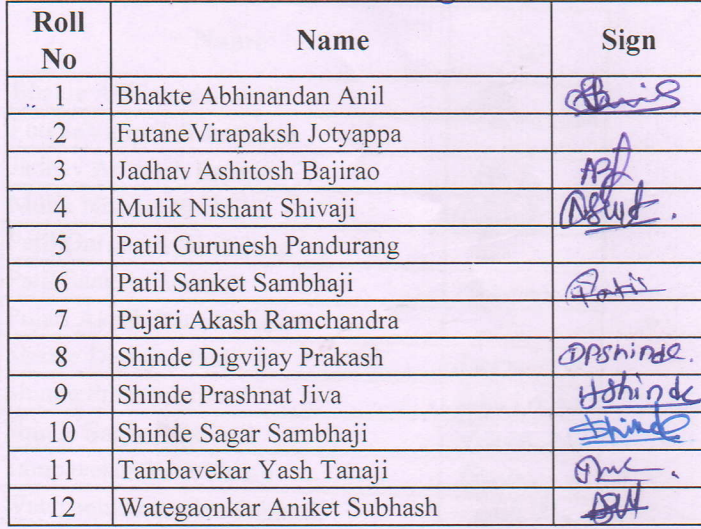 Roll No Name Sign
1 Bhakte Abhinandan Anil
2 FutaneVirapaksh Jotyappa
3 Jadhav Ashitosh Bajirao
4 Mulik Nishant Shivaji
5 Patil Gurunesh Pandurang
6 Patil Sanket Sambhaji Patil
7 Pujari Akash Ramchandra
8 Shinde Digvijay Prakash DPShinde.
9 Shinde Prashnat Jiva Shinde
10 Shinde Sagar Sambhaji Shinde
11 Tambavekar Yash Tanaji
12 Wategaonkar Aniket Subhash